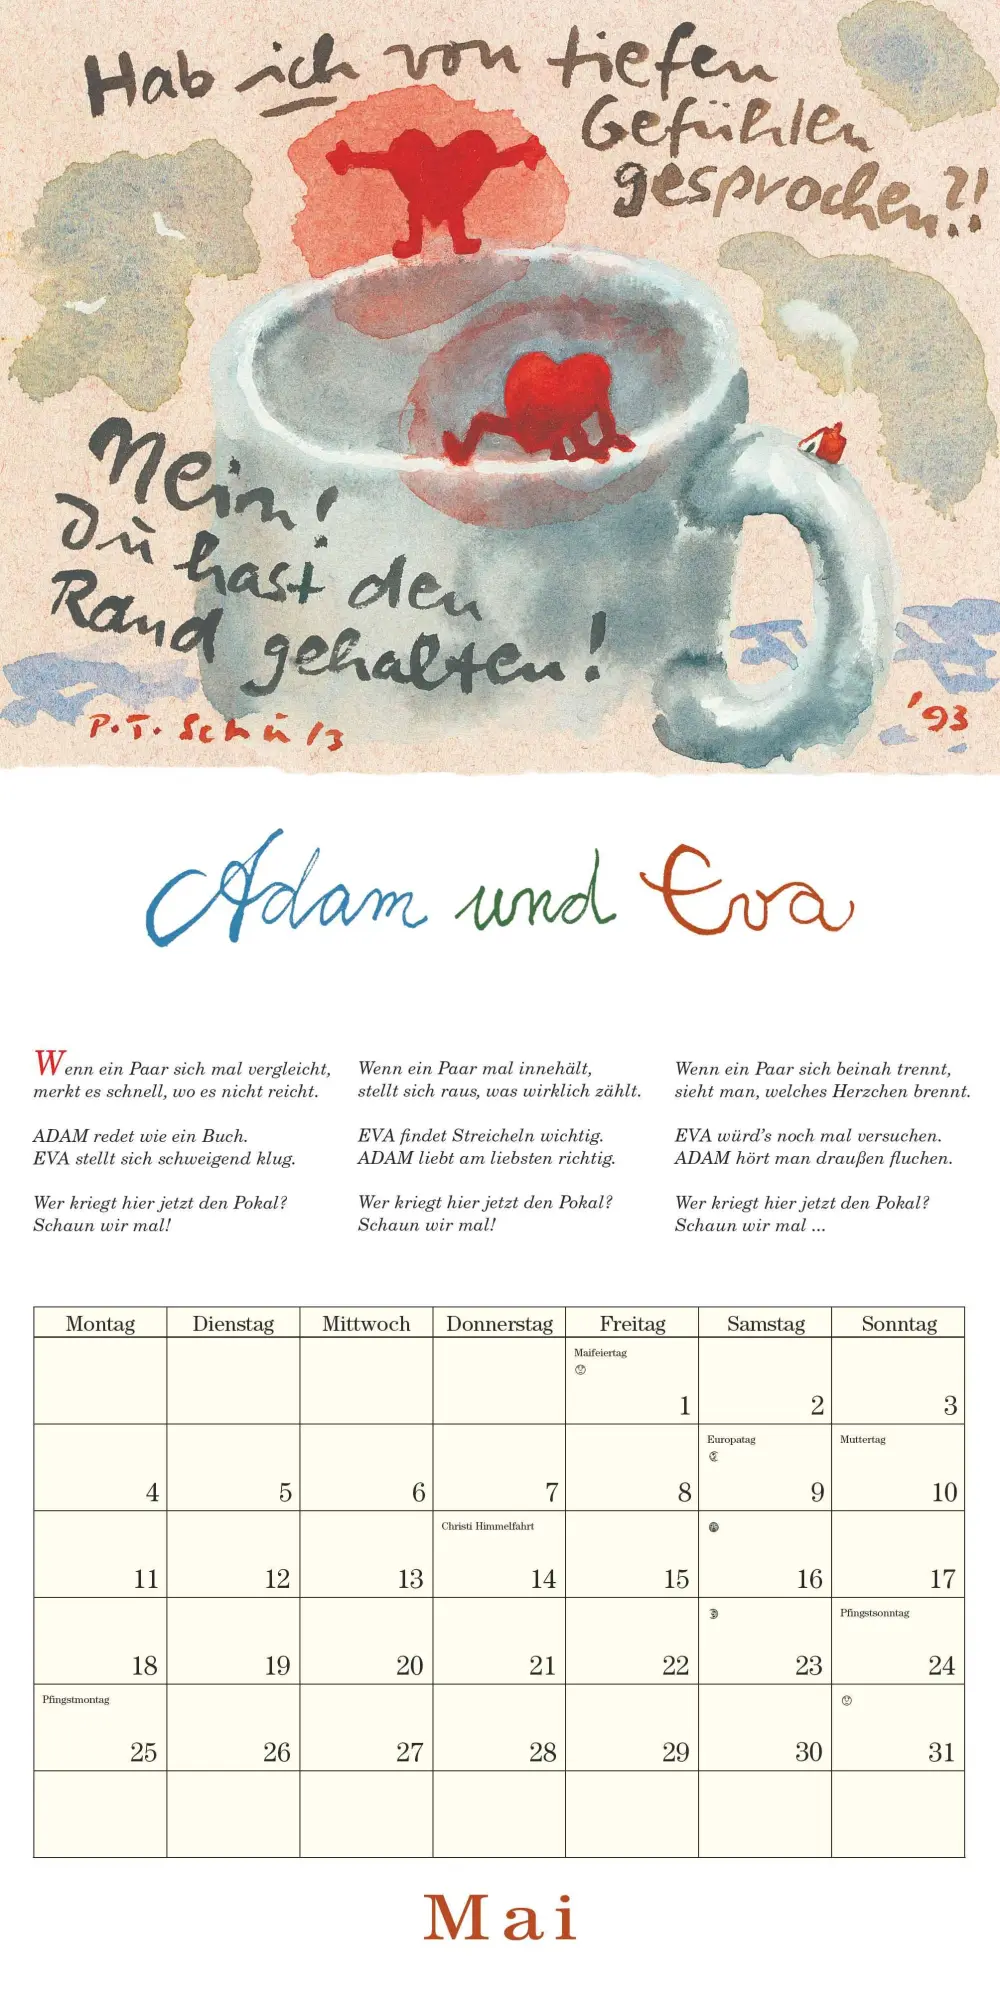 Hab ich von tiefen
Gefühlen
gesprochen?!
Nein!
du hast den
Rand gehalten!
P.T. Schulz
'93
Adam und Eva
Wenn ein Paar sich mal vergleicht,
merkt es schnell, wo es nicht reicht.
ADAM redet wie ein Buch.
EVA stellt sich schweigend klug.
Wer kriegt hier jetzt den Pokal?
Schaun wir mal!
Wenn ein Paar mal innehält,
stellt sich raus, was wirklich zählt.
EVA findet Streicheln wichtig.
ADAM liebt am liebsten richtig.
Wer kriegt hier jetzt den Pokal?
Schaun wir mal!
Wenn ein Paar sich beinah trennt,
sieht man, welches Herzchen brennt.
EVA würd's noch mal versuchen.
ADAM hört man draußen fluchen.
Wer kriegt hier jetzt den Pokal?
Schaun wir mal ...
Montag Dienstag Mittwoch Donnerstag Freitag Samstag Sonntag
Maifeiertag
1 2 3
Europatag Muttertag
4 5 6 7 8 9 10
Christi Himmelfahrt
11 12 13 14 15 16 17
Pfingstsonntag
18 19 20 21 22 23 24
Pfingstmontag
25 26 27 28 29 30 31
Mai